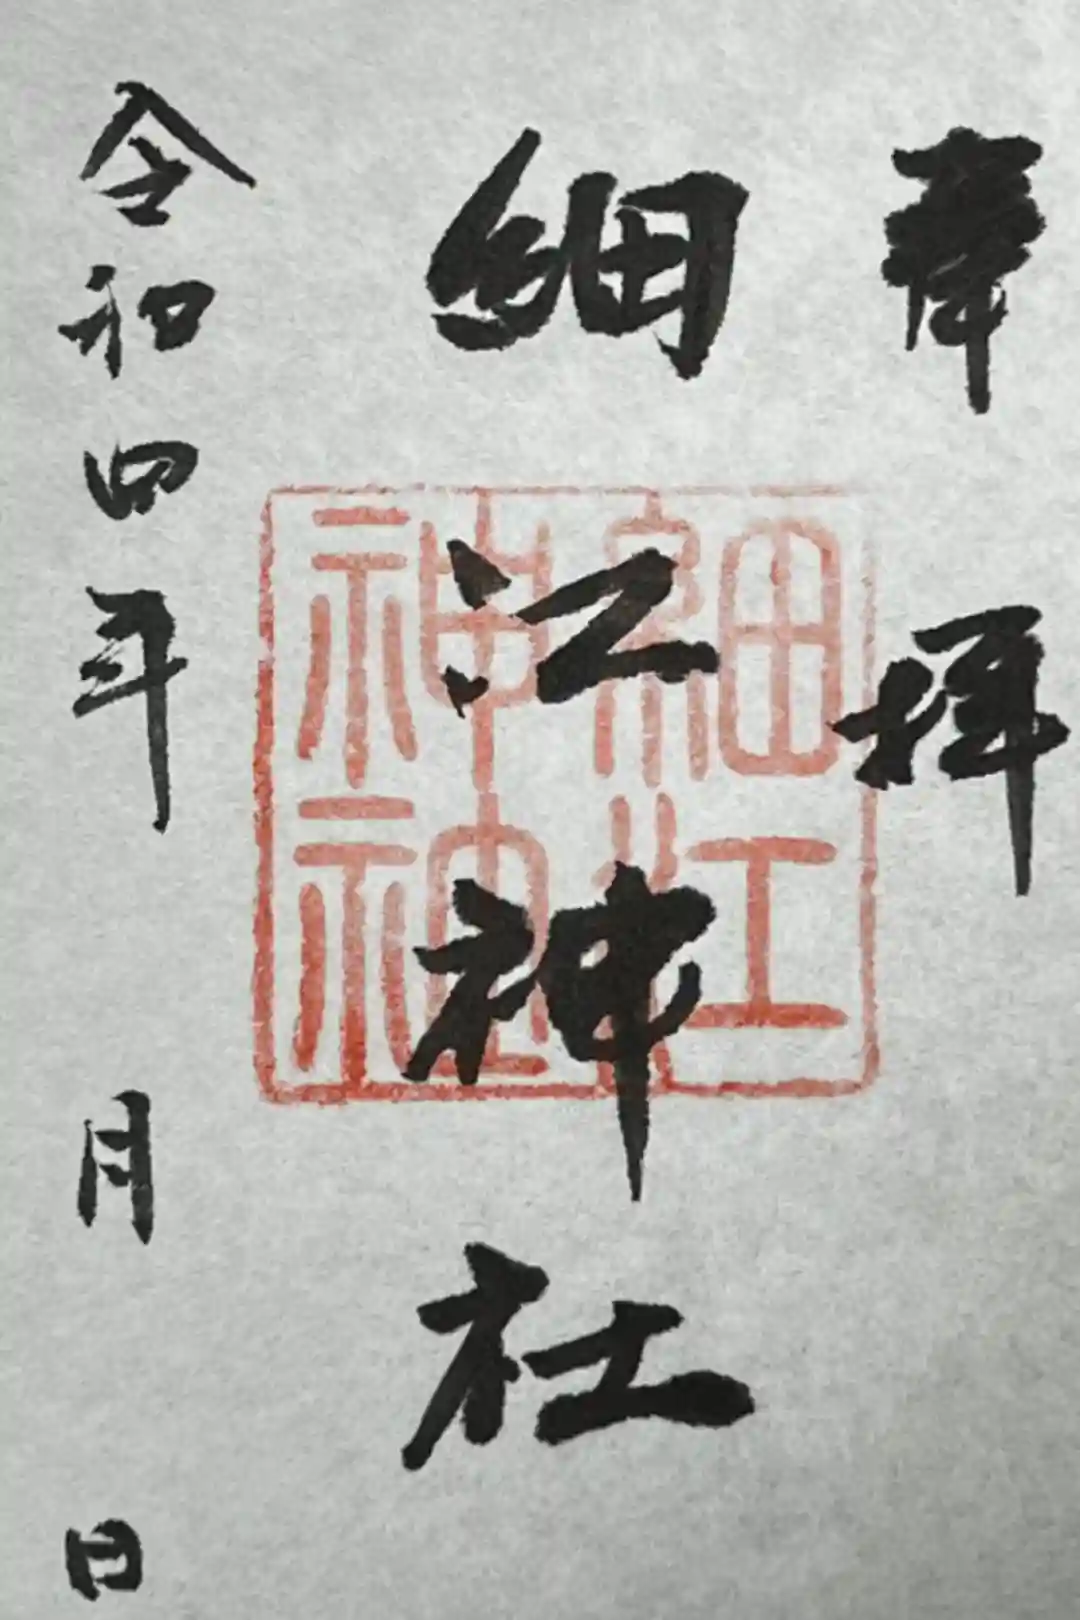 奉拝
細江神社
細江
神社
令和四年 月 日